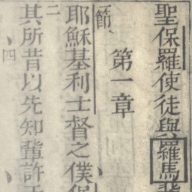 聖保羅使徒與羅馬
第一章
節
耶穌基利士督之僕保
二
其所昔以先知輩許于
四